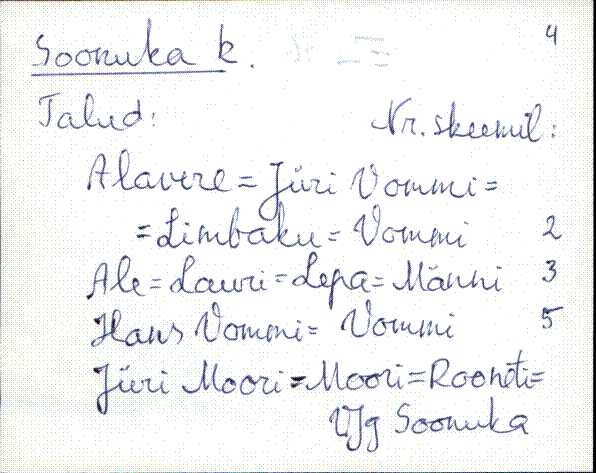 4
Soonuka k.
Talud: Nr. skeemil:
Alavere = Jüri Vommi =
= Limbaku = Vommi 2
Ale = Lauri = Lepa = Männi 3
Hans Vommi = Vommi 5
Jüri Moori = Moori = Roonöti =
VJg Soonuka